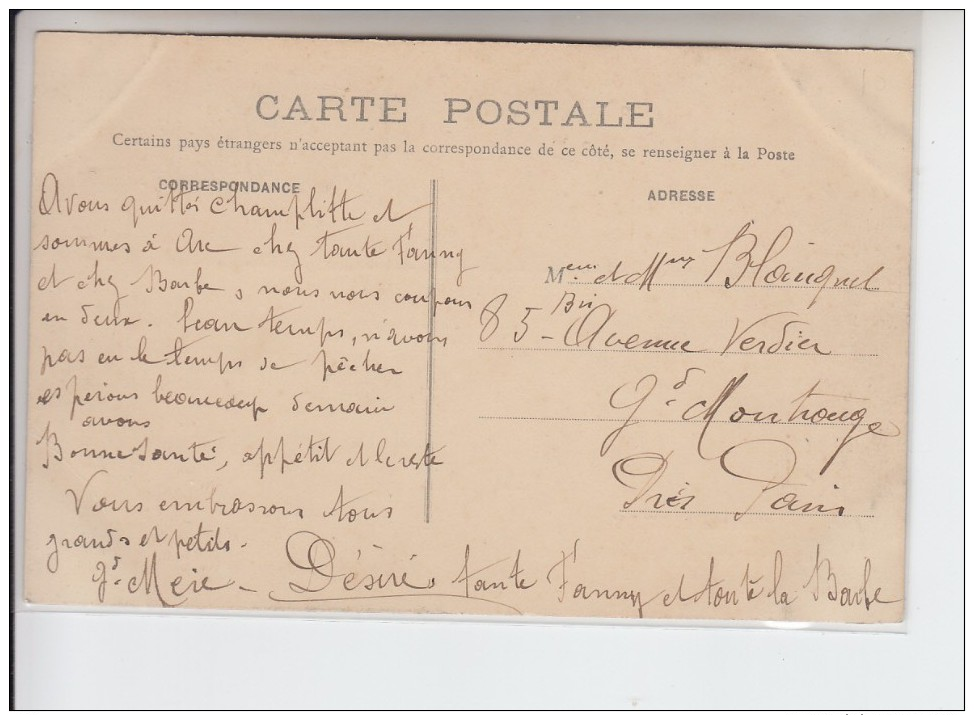 CARTE POSTALE
Certains pays étrangers n'acceptant pas la correspondance de ce côté, se renseigner à la Poste
CORRESPONDANCE
Avons quitté Champlitte et
sommes à Arc chez tante Fanny
et chez Barbe, nous nous coupons
en deux. Beau temps, n'avons
pas eu le temps de pêcher
espérons beaucoup demain
avons
Bonne santé, appétit et le reste
Vous embrassons tous
grands et petits.
gd. Mère - Désiré tante Fanny et toute la Barbe
ADRESSE
et Mme Blanquet
85 Bis - Avenue Verdier
Gd. Montrouge
Près Paris